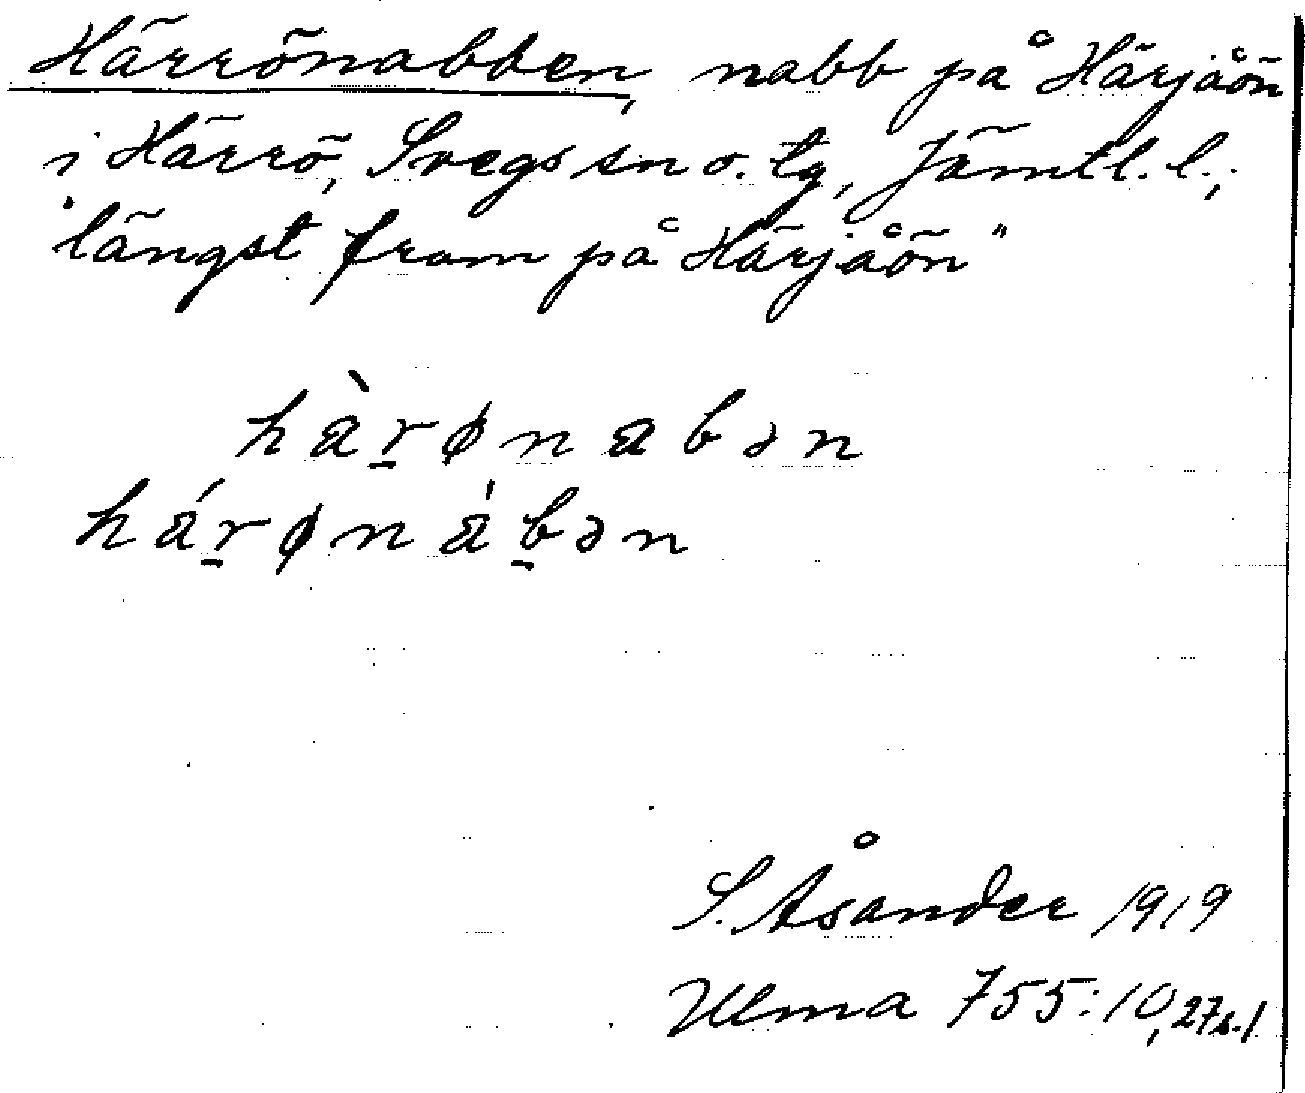 Härrönabben, nabb på Härjåön
i Härrö, Svegs sn o. tg, Jämtl. l.;
"längst fram på Härjåön"
hàr̲ønabən
hár̲ønáb̲ən
S. Åsander 1919
Ulma 755:10, 27 s. 1